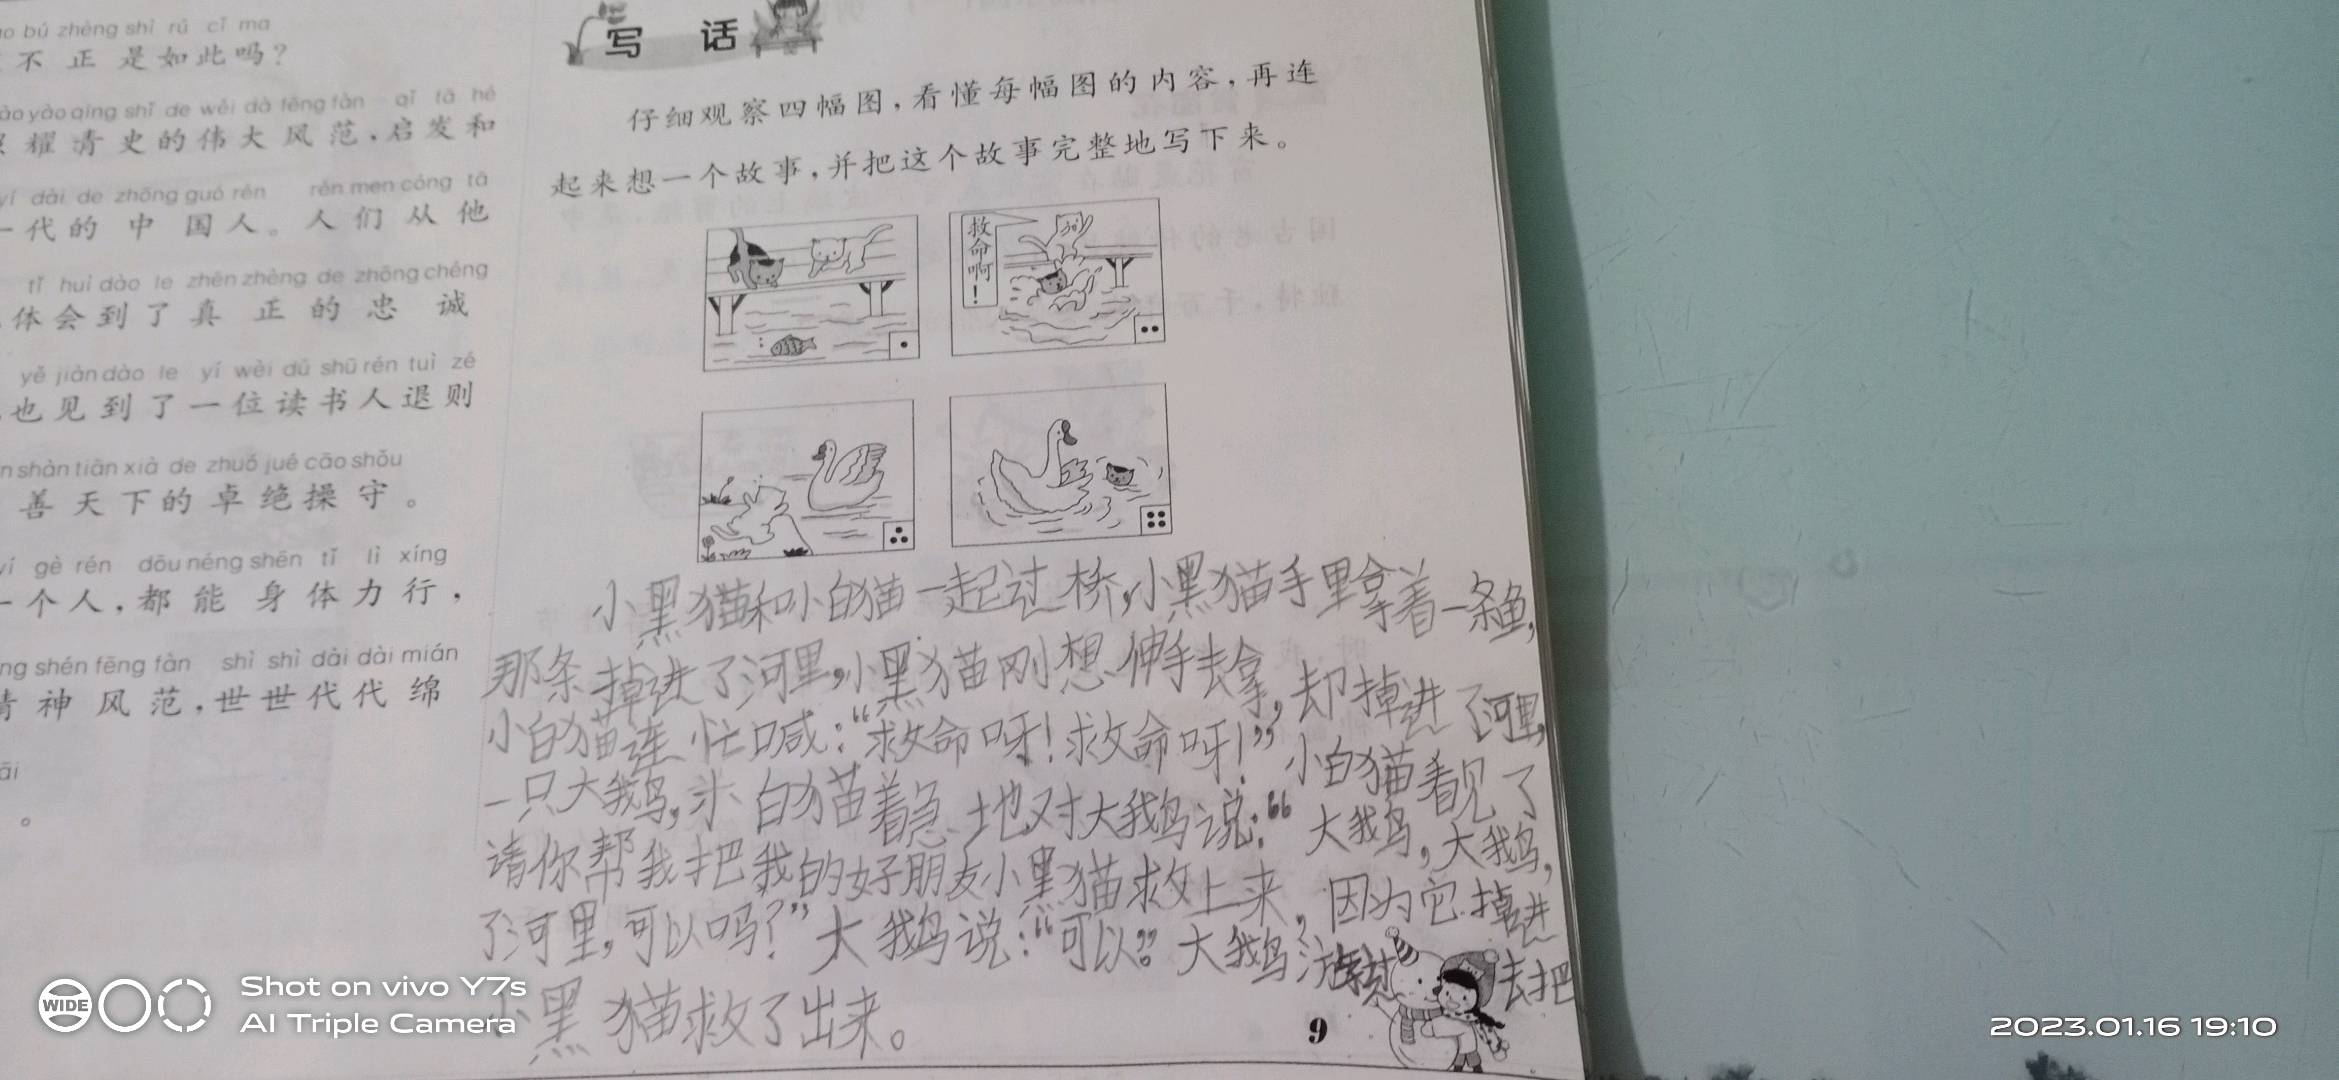 bú zhèng shì rú cǐ ma
不正是如此吗?
yào qīng shǐ de wěi dà fēng fàn qǐ fā hé
耀青史的伟大风范,启发和
yí dài de zhōng guó rén rén men cóng tā
一代的中国人。人们从他
tǐ huì dào le zhēn zhèng de zhōng chéng
体会到了真正的忠诚
yě jiàn dào le yí wèi dú shū rén tuì zé
也见到了一位读书人退则
shàn tiān xià de zhuó jué cāo shǒu
善天下的卓绝操守。
yí gè rén dōu néng shēn tǐ lì xíng
一个人,都能身体力行,
shén fēng fàn shì shì dài dài mián
神风范,世世代代绵
。
写话
仔细观察四幅图,看懂每幅图的内容,再连
起来想一个故事,并把这个故事完整地写下来。
救命啊!
小黑猫和小白猫一起过桥,小黑猫手里拿着一条鱼,
那条掉进了河里,小黑猫刚想伸手去拿,却掉进了河里,
小白猫连忙喊:“救命呀!救命呀!”小白猫看见了
一只大鹅,小白猫着急地对大鹅说:“大鹅,大鹅,
请你帮我把我的好朋友小黑猫救上来,因为它掉进
了河里,可以吗?”大鹅说:“可以。”大鹅游 去把
小黑猫救了出来。
9
WIDE
Shot on vivo Y7s
AI Triple Camera
2023.01.16 19:10